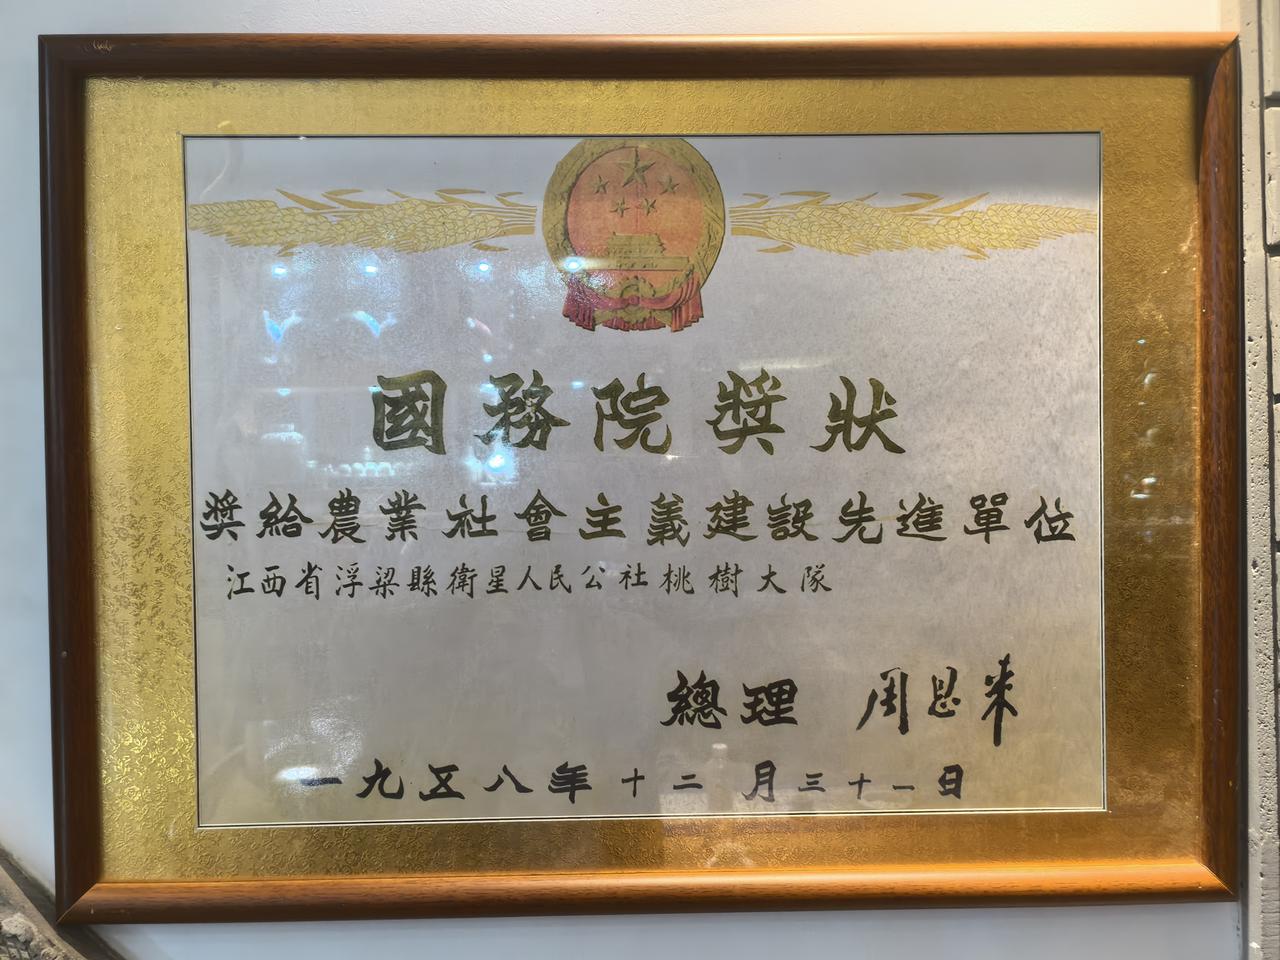 國務院獎狀
獎給農業社會主義建設先進單位
江西省浮梁縣衛星人民公社桃樹大隊
總理 周恩来
一九五八年十二月三十一日